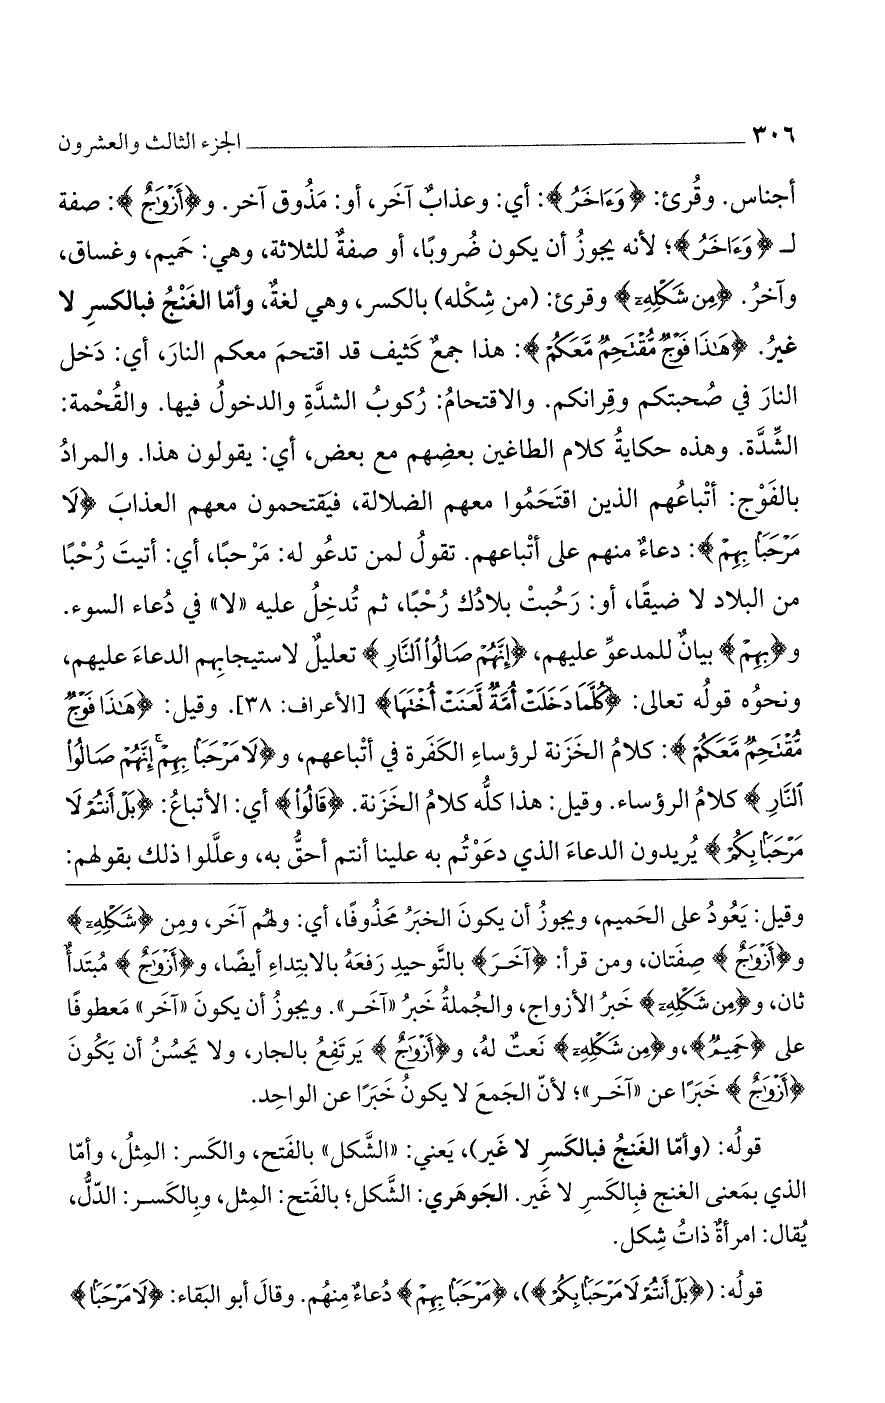 ٣٠٦ ـــــــــــــــــــــ الجزء الثالث والعشرون
أجناس. وقُرئ: ﴿وَءَاخَرُ﴾: أي: وعذابٌ آخَر، أو: مَذُوق آخر. و﴿أَزْوَٰجٌ﴾: صفة
لـ ﴿وَءَاخَرُ﴾؛ لأنه يجوزُ أن يكون ضُروبًا، أو صفةٌ للثلاثة، وهي: حَميم، وغساق،
وآخرُ. ﴿مِن شَكْلِهِۦٓ﴾ وقرئ: (من شِكْله) بالكسر، وهي لغةٌ، وأمّا الغَنْجُ فبالكسرِ لا
غيرُ. ﴿هَٰذَا فَوْجٌ مُّقْتَحِمٌ مَّعَكُمْ﴾: هذا جمعٌ كَثيف قد اقتحمَ معكم النارَ، أي: دَخل
النارَ في صُحبتكم وقِرانكم. والاقتحامُ: رُكوبُ الشدَّةِ والدخولُ فيها. والقُحْمة:
الشِّدَّة. وهذه حكايةُ كلام الطاغين بعضِهم مع بعض، أي: يقولون هذا. والمرادُ
بالفَوْج: أتْباعُهم الذين اقتَحَمُوا معهم الضلالة، فيَقتحمون معهم العذابَ ﴿لَا
مَرْحَبًۢا بِهِمْ﴾: دعاءٌ منهم على أتْباعهم. تقولُ لمن تدعُو له: مَرْحبًا، أي: أتيتَ رُحْبًا
من البلاد لا ضيقًا، أو: رَحُبتْ بلادُك رُحْبًا، ثم تُدخِلُ عليه «لا» في دُعاء السوء.
و﴿بِهِمْ﴾ بيانٌ للمدعوِّ عليهم، ﴿إِنَّهُمْ صَالُوا۟ ٱلنَّارِ﴾ تعليلٌ لاستيجابِهم الدعاءَ عليهم،
ونحوُه قولُه تعالى: ﴿كُلَّمَا دَخَلَتْ أُمَّةٌ لَّعَنَتْ أُخْتَهَا﴾ [الأعراف: ٣٨]. وقيل: ﴿هَٰذَا فَوْجٌ
مُّقْتَحِمٌ مَّعَكُمْ﴾: كلامُ الخَزَنة لرؤساءِ الكَفَرة في أتْباعهم، و﴿لَا مَرْحَبًۢا بِهِمْ ۚ إِنَّهُمْ صَالُوا۟
ٱلنَّارِ﴾ كلامُ الرؤساء. وقيل: هذا كلُّه كلامُ الخَزَنة. ﴿قَالُوا۟﴾ أي: الأتباعُ: ﴿بَلْ أَنتُمْ لَا
مَرْحَبًۢا بِكُمْ﴾ يُريدون الدعاءَ الذي دعَوْتُم به علينا أنتم أحقُّ به، وعلَّلوا ذلك بقولهم:
وقيل: يَعُودُ على الحَميم، ويجوزُ أن يكونَ الخبَرُ مَحَذُوفًا، أي: ولهُم آخَر، ومِن ﴿شَكْلِهِۦٓ﴾
و﴿أَزْوَٰجٌ﴾ صِفَتان، ومن قرأ: ﴿آخَـرَ﴾ بالتَّوحيدِ رَفعَهُ بالابتداءِ أيضًا، و﴿أَزْوَٰجٌ﴾ مُبْتَدأٌ
ثان، و﴿مِن شَكْلِهِۦٓ﴾ خَبَرُ الأزواج، والجُملةُ خَبرُ «آخَـر». ويجوزُ أن يكونَ «آخَر» مَعطوفًا
على ﴿حَمِيمٌ﴾، و﴿مِن شَكْلِهِۦٓ﴾ نَعتٌ لهُ، و﴿أَزْوَٰجٌ﴾ يَرتَفِعُ بالجار، ولا يَحسُنُ أن يَكُونَ
﴿أَزْوَٰجٌ﴾ خَبَرًا عن «آخَـر»؛ لأنّ الجَمعَ لا يكونُ خَبَرًا عن الواحِد.
قولُه: (وأمّا الغَنجُ فبالكَسرِ لا غَير)، يَعني: «الشَّكل» بالفَتح، والكَسر: المِثلُ، وأمّا
الذي بمَعنى الغنج فبِالكَسرِ لا غَير. الجَوهَري: الشَّكل؛ بالفَتح: المِثل، وبِالكَسـر: الدّلُّ،
يُقال: امرأةٌ ذاتُ شِكل.
قولُه: (﴿بَلْ أَنتُمْ لَا مَرْحَبًۢا بِكُمْ﴾)، ﴿مَرْحَبًۢا بِهِمْ﴾ دُعاءٌ مِنهُم. وقالَ أبو البَقاء: ﴿لَا مَرْحَبًۢا﴾